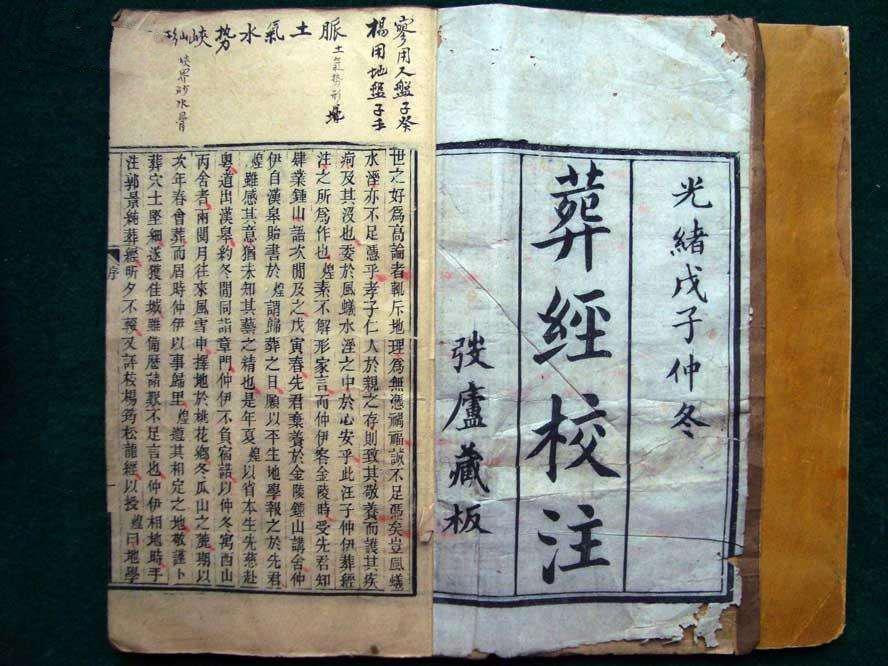 光緒戊子仲冬
葬經校注
弢廬藏板
寥用人盤子癸
楊用地盤子壬
脈土氣水势峽
土氣势形
峽界砂水骨
世之好為高論者輒斥地理為無憑禍福誠不足惑矣豈風蟻
水溼亦不足憑乎孝子仁人於親之存則致其敬養而護其疾
疴及其沒也委於風蟻水溼之中於心安乎此汪子仲伊葬經
注之所為作也煌素不解形家言而仲伊客金陵時受先君知
肄業鍾山語次閒及之戊寅春先君棄養於金陵鍾山講舍仲
伊自漢皋貽書於煌謂歸葬之日願以平生地學報之於先君
煌雖感其意猶未知其藝之精也是年夏煌以省本生先慈赴
粵道出漢皋約冬閒同詣章門仲伊不負宿諾以仲冬寓西山
丙舍者兩閱月往來風雪中擇地於桃花鄉冬瓜山之麓塴以
次年春會葬而屆時仲伊以事歸里煌遵其相定之地敬謹卜
葬穴土堅細遂獲佳城雖備歷諸艱不足言也仲伊相地時手
注郭景純葬經昕夕不輟又評校楊筠松龍經以授煌曰地學
序
一